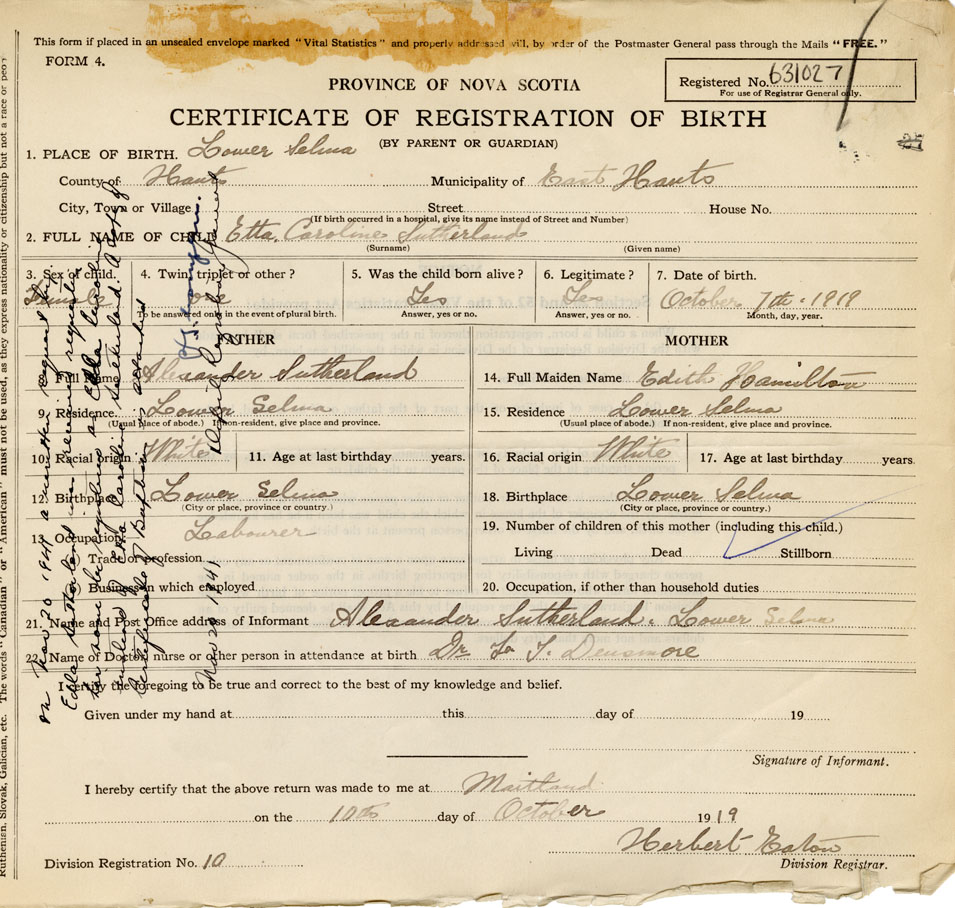 This form if placed in an unsealed envelope marked "Vital Statistics" and properly addressed will, by order of the Postmaster General pass through the Mails "FREE."
FORM 4.
PROVINCE OF NOVA SCOTIA
Registered No. 631027
For use of Registrar General only.
CERTIFICATE OF REGISTRATION OF BIRTH
(BY PARENT OR GUARDIAN)
1. PLACE OF BIRTH. Lower Selma
County of Hants Municipality of East Hants
City, Town or Village Street House No.
(If birth occurred in a hospital, give its name instead of Street and Number)
2. FULL NAME OF CHILD Etta Caroline Sutherland
(Surname) (Given name)
3. Sex of child. 4. Twin, triplet or other? 5. Was the child born alive? 6. Legitimate? 7. Date of birth.
Female one Yes Yes October 7th 1919
To be answered only in the event of plural birth. Answer, yes or no. Answer, yes or no. Month, day, year.
FATHER MOTHER
Full Name Alexander Sutherland 14. Full Maiden Name Edith Hamilton
9. Residence Lower Selma 15. Residence Lower Selma
(Usual place of abode.) If non-resident, give place and province. (Usual place of abode.) If non-resident, give place and province.
10. Racial origin White 11. Age at last birthday years. 16. Racial origin White 17. Age at last birthday years.
12. Birthplace Lower Selma 18. Birthplace Lower Selma
(City or place, province or country.) (City or place, province or country.)
13. Occupation Labourer 19. Number of children of this mother (including this child.)
Trade or profession Living Dead Stillborn
Business in which employed 20. Occupation, if other than household duties
21. Name and Post Office address of Informant Alexander Sutherland. Lower Selma
22. Name of Doctor, nurse or other person in attendance at birth Dr Densmore
I certify the foregoing to be true and correct to the best of my knowledge and belief.
Given under my hand at this day of 19
Signature of Informant.
I hereby certify that the above return was made to me at Maitland
on the 10th day of October 1919
Herbert Eaton
Division Registration No. 10 Division Registrar.
Ruthenian, Slovak, Galician, etc. The words "Canadian" or "American" must not be used, as they express nationality or citizenship but not a race or
On Nov 20 1941 a written request by
Edla Sutherland was received requesting
her name be registered as Edla Caroline
instead of Etta Caroline Sutherland. A copy of
Certificate of Baptism is attached
Nov 20 1941 Deputy Registrar General